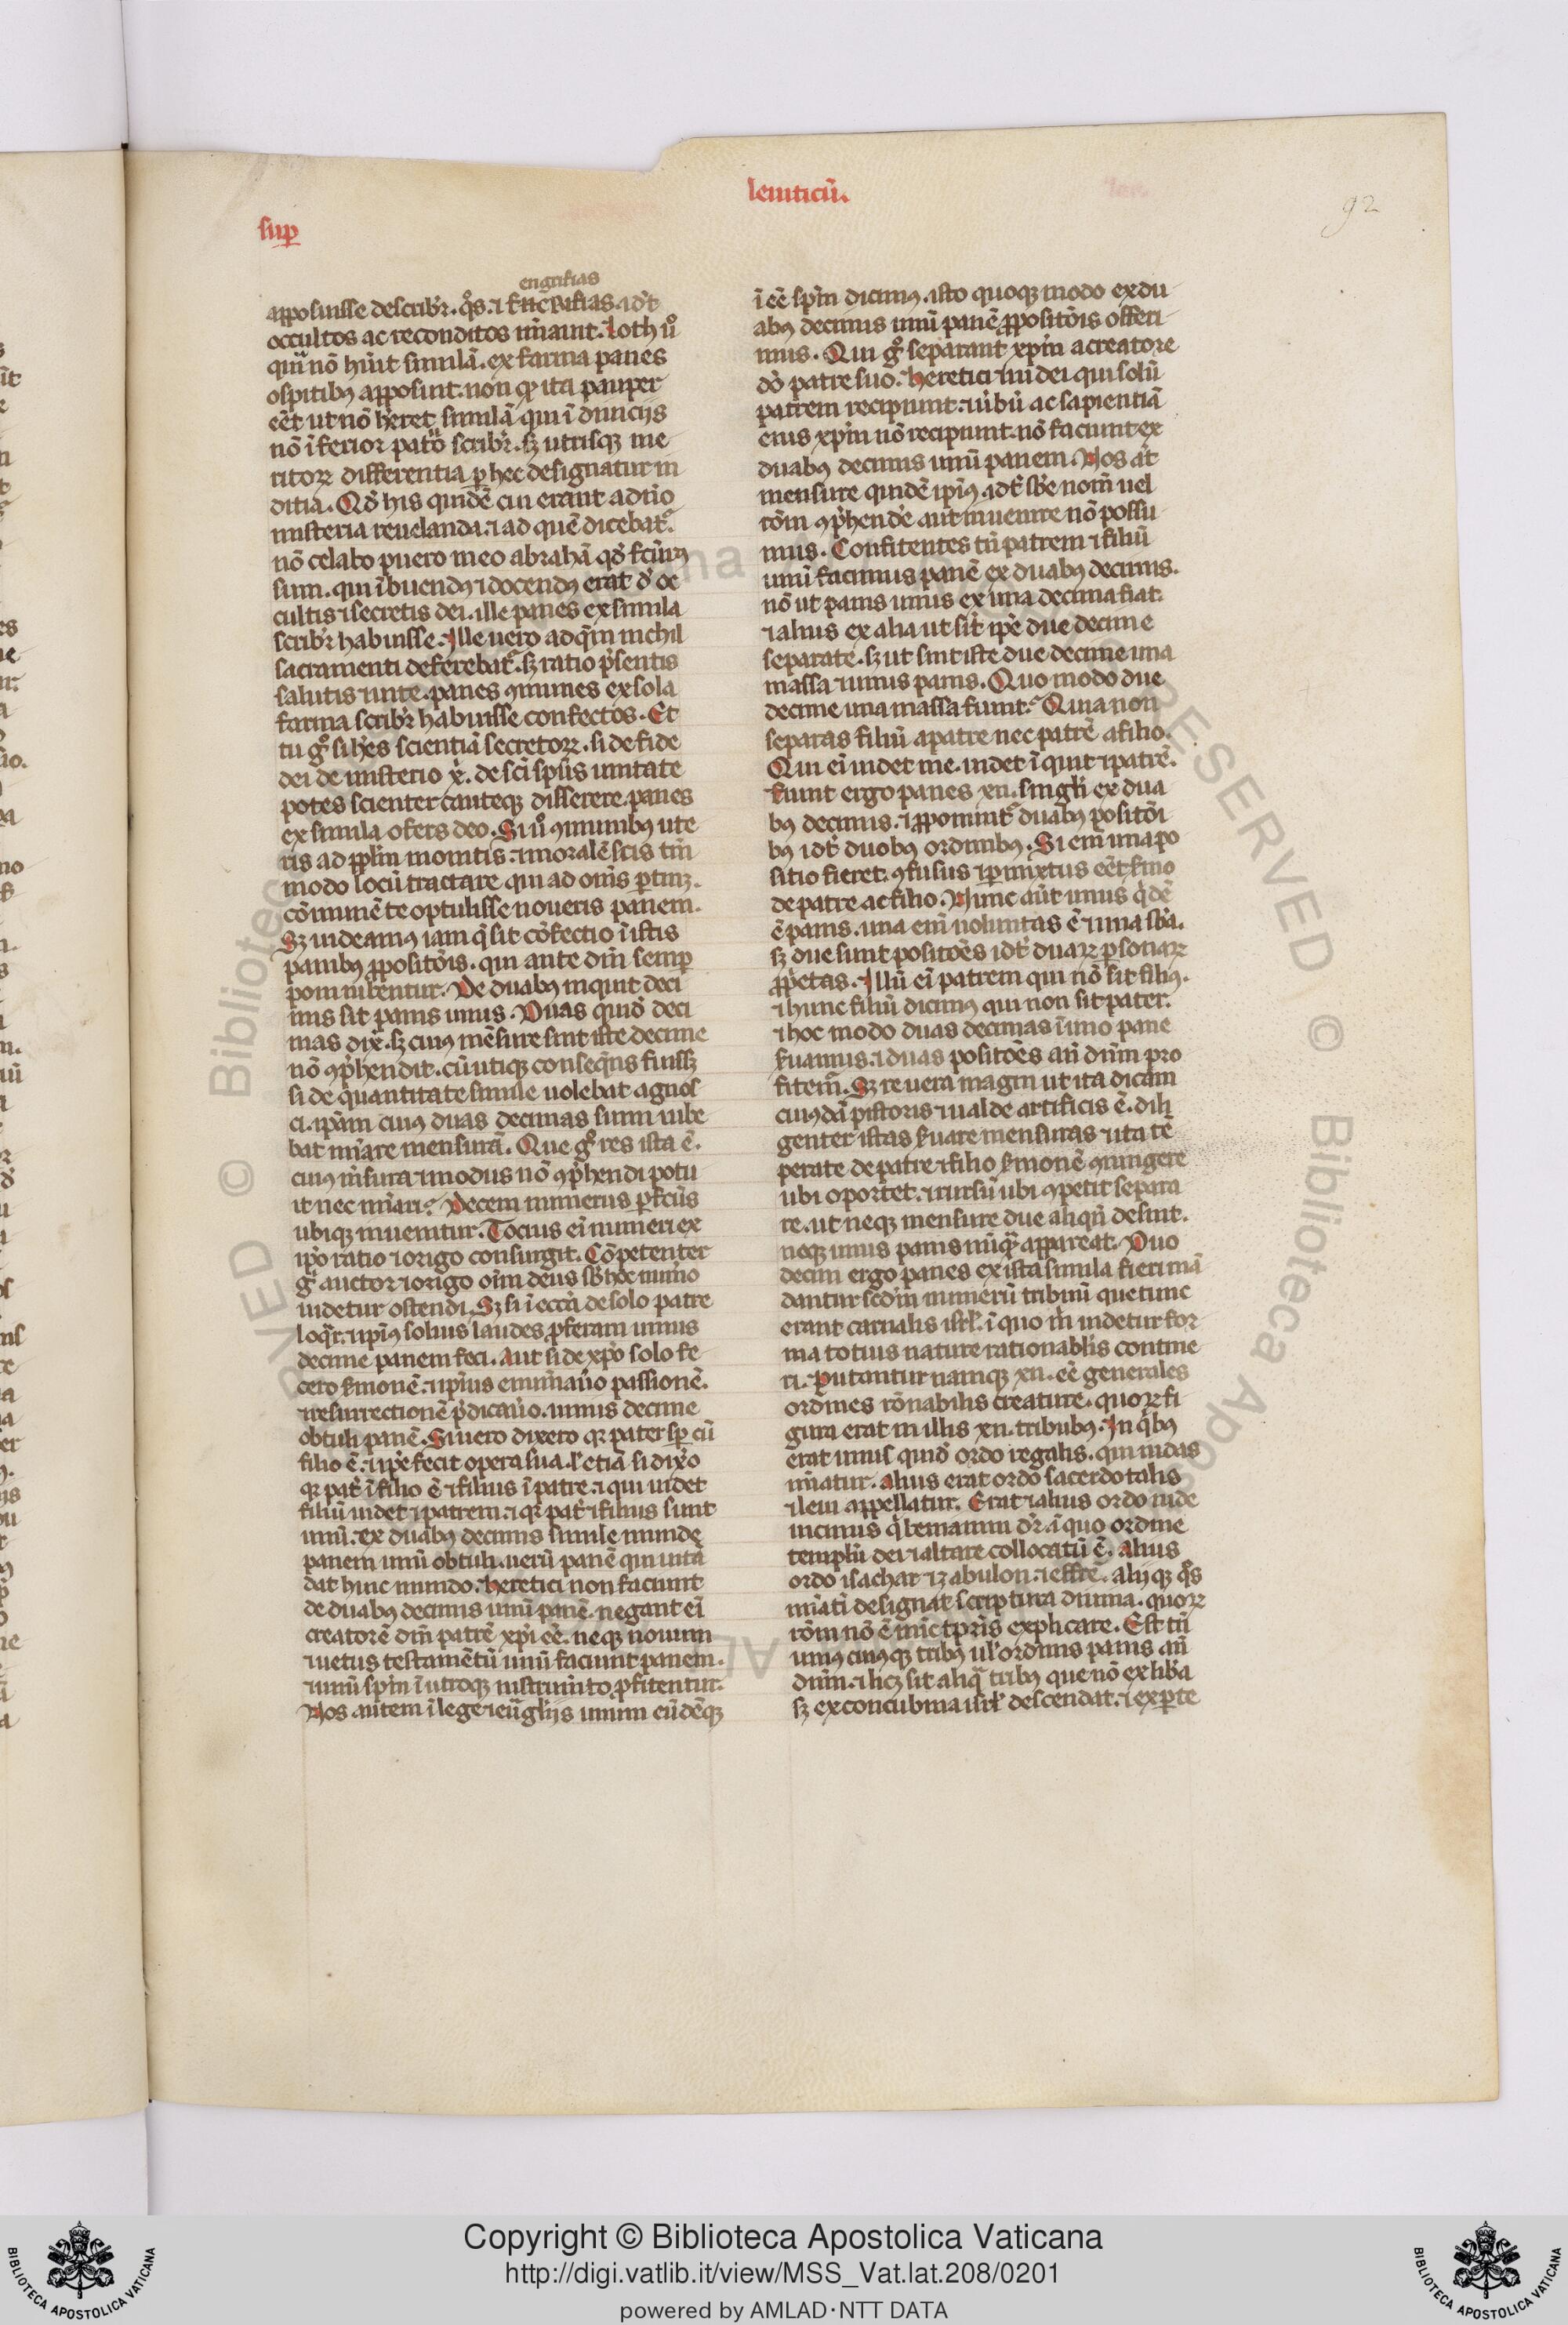 sup
leuiticū.
92
engrifias
apposuisse describit᷑. q̊s. ⁊ ad't
occultos ac reconditos nīaint. Loth ů
qui nō hūit similā. ex farina panes
ospitibꝰ apposuit. non qꝫ ita pauper
eēt ut nō h'eret similā qui ī diuicijs
nō īferior pat'o scribit᷑. sꝫ utrisqꝫ me
ritoꝝ differentia ꝑ hec designatur in
ditia. Qd' his quidē cui erant adiūo
misteria reuelanda. ⁊ ad quē dicebat᷑.
nō celabo puero meo abrahā qd' fcūrꝰ
sum. qui ībuendꝰ ⁊ docendꝰ erat d' oc
cultis ⁊ secretis dei. ille panes ex simila
scribit᷑ habuisse. Ille uero ad qm̄ nichil
sacramenti deferebat᷑. sꝫ ratio p̄sentis
salutis ⁊ uite. panes ꝯmunes ex sola
farina scribit᷑ habuisse confectos. Et
tu g̊ si h'es scientiā secretoꝝ. si de fide
dei de misterio x̄. de sci sp̄us unitate
potes scienter cauteqꝫ disserere. panes
ex simila ofers deo. Si ů ꝯmunibꝰ ute
ris ad pp̄lm monitis. ⁊ moralē scis tm̄
modo locū tractare qui ad om̄s ꝑtinꝫ.
cōmunē te optulisse noueris panem.
Sꝫ uideamꝰ iam q̄ sit cōfectio ī istis
panibꝰ ꝓpositōis. qui ante dn̄m semꝑ
poni iubentur. De duabꝰ inquit deci
mis sit panis unus. Duas quid' deci
mas dix̄. sꝫ cuiꝰ mēsure sint iste decime
nō ꝯp̄hendit. cū utiqꝫ conseqn̄s fuissꝫ
si de quantitate simile uolebat agnos
ci. ip̄am cuiꝰ duas decimas sumi iube
bat nīare mensurā. Que g̊ res ista ē.
cuiꝰ m̄sura ⁊ modus nō ꝯp̄hendi potu
it nec nīari? Decem numerus ꝑfcūs
ubiqꝫ inuenitur. Tocius ei numeri ex
ip̄o ratio ⁊ origo consurgit. Cōpetenter
g̊ auctor ⁊ origo oīm deus sb' hoc num̄o
uidetur ostendi. Sꝫ si ī ecc'a de solo patre
loqr̄. ⁊ ip̄iꝰ solius laudes ꝓferam unius
decime panem feci. Aut si de xp̄o solo fe
cero ẜmonē. ⁊ ip̄ius enum̄au'o passionē.
⁊ resurrectionē p̄dicau'o. unius decime
obtuli panē. Si uero dixero qꝛ pater sꝑ cū
filio ē. ⁊ ip̄e fecit opera sua. l' etiā si dix'o
qꝛ pat' ī filio ē ⁊ filius ī patre. ⁊ qui uidet
filiū uidet ⁊ patrem. ⁊ qꝛ pat' ⁊ filius sunt
unū. ex duabꝰ decimis simile mundę
panem unū obtuli. uerū panē qui uitā
dat huic mundo. heretici non faciunt
de duabꝰ decimis unū panē. negant ei
creatorē dn̄m patrē xp̄i eē. neqꝫ nouum
⁊ uetus testamētū unū faciunt panem.
⁊ unū spm̄ ī utroqꝫ instrum̄to ꝓfitentur.
Nos autem ī lege ⁊ euāglijs unum eūdēqꝫ
ī eē spm̄ dicimꝰ. isto quoqꝫ modo ex du
abꝰ decimis unū panē ꝓpositōis offeri
mus. Qui g̊ separant xp̄m a creatore
dō patre suo. heretici ⁊ iudei qui solū
patrem recipiunt. ⁊ uerbū ac sapientiā
eius xp̄m nō recipiunt. nō faciunt ex
duabꝰ decimis unū panem. Nos at
mensure quidē ip̄iꝰ. id't sb'e nom̄ uel
rōm ꝯp̄hend'e aut inuenire nō possu
mus. Confitentes tn̄ patrem ⁊ filiū
unū facimus panē ex duabꝰ decimis.
nō ut panis unus ex una decima fiat.
⁊ alius ex alia ut sit ip̄e due decime
separate. sꝫ ut sint iste due decime una
massa ⁊ unus panis. Quo modo due
decime una massa fiunt? Quia non
separas filiū a patre nec patrē a filio.
Qui ei uidet me. uidet īquit ⁊ patrē.
Fiunt ergo panes xii. singli ex dua
bꝰ decimis. ⁊ ꝓponunt᷑ duabꝰ positōi
bꝰ id't duobꝰ ordinibꝰ. Si em̄ una po
sitio fieret. ꝯfusus ⁊ ꝑmixtus eēt ẜmo
de patre ac filio. Nunc aūt unus q'dē
ē panis. una em̄ uoluntas ē ⁊ una sb'a.
sꝫ due sunt positōes id't duaꝝ ꝑsonaꝝ
ꝓp'etas. Illū ei patrem qui nō sit filiꝰ.
⁊ hunc filiū dicimꝰ qui non sit pater.
⁊ hoc modo duas decimas ī uno pane
ẜuamus. ⁊ duas positōes an̄ dn̄m pro
fitem᷑. Sꝫ re uera magni ut ita dicam
cuiꝰdā pistoris ⁊ ualde artificis ē. dili
genter istas ẜuare mensuras ⁊ ita tē
perate de patre ⁊ filio ẜmonē ꝯiungere
ubi oportet. ⁊ rursū ubi ꝯpetit separa
re. ut neqꝫ mensure due aliqn̄ desint.
neqꝫ unus panis nūq̄ appareat. Duo
decim ergo panes ex ista simila fieri mā
dantur scd'm numerū tribuū que tunc
erant carnalis isrl'. ī quo m̄ uidetur for
ma totius nature rationablis contine
ri. Putantur namqꝫ xii. eē generales
ordines rōnabilis creature. quoꝝ fi
gura erat in illis xii. tribubꝰ. In q'bꝰ
erat unus quid' ordo regalis. qui iudas
nīatur. Alius erat ordo sacerdotalis
⁊ leui appellatur. Erat ⁊ alius ordo iude
uicinus q' beniamin dr̄. ī quo ordine
templū dei ⁊ altare collocatū ē. Alius
ordo isachar ⁊ zabulon. ⁊ effre. alij qꝫ q̊s
nīati designat scriptura diuina. quoꝝ
rōm nō ē explicare. Est tn̄
uniꝰcuiusqꝫ tribꝰ ul' ordinis panis an̄
dn̄m. ⁊ licꝫ sit aliq̄ tribꝰ que nō ex lib'a
sꝫ ex concubina isrl' descendat. ⁊ ex ꝑte
Copyright © Biblioteca Apostolica Vaticana
http://digi.vatlib.it/view/MSS_Vat.lat.208/0201
powered by AMLAD·NTT DATA
BIBLIOTECA APOSTOLICA VATICANA
BIBLIOTECA APOSTOLICA VATICANA